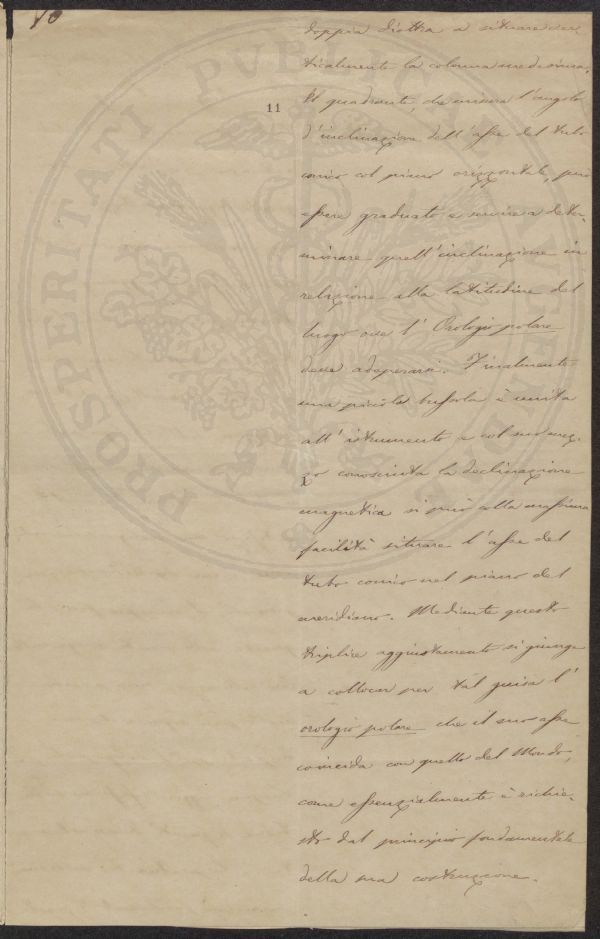 10
11
doppia diottra a situare ver-
ticalmente la colonna medesima.
Il quadrante, che misura l'angolo
d'inclinazione dell'asse del tubo
conico col piano orizzontale, può
essere graduato e servire a deter-
minare quell'inclinazione in
relazione alla latitudine del
luogo ove l'Orologio polare
deve adoperarsi. Finalmente
una piccola bussola è unita
all'istrumento e col suo mez-
zo conosciuta la declinazione
magnetica si può alla massima
facilità situare l'asse del
tubo conico nel piano del
meridiano. Mediante questo
triplice aggiustamento si giunge
a collocar per tal guisa l'
orologio polare che il suo asse
coincida con quello del Mondo,
come essenzialmente è richie-
sto dal principio fondamentale
della sua costruzione.
PROSPERITATI PUBLICAE